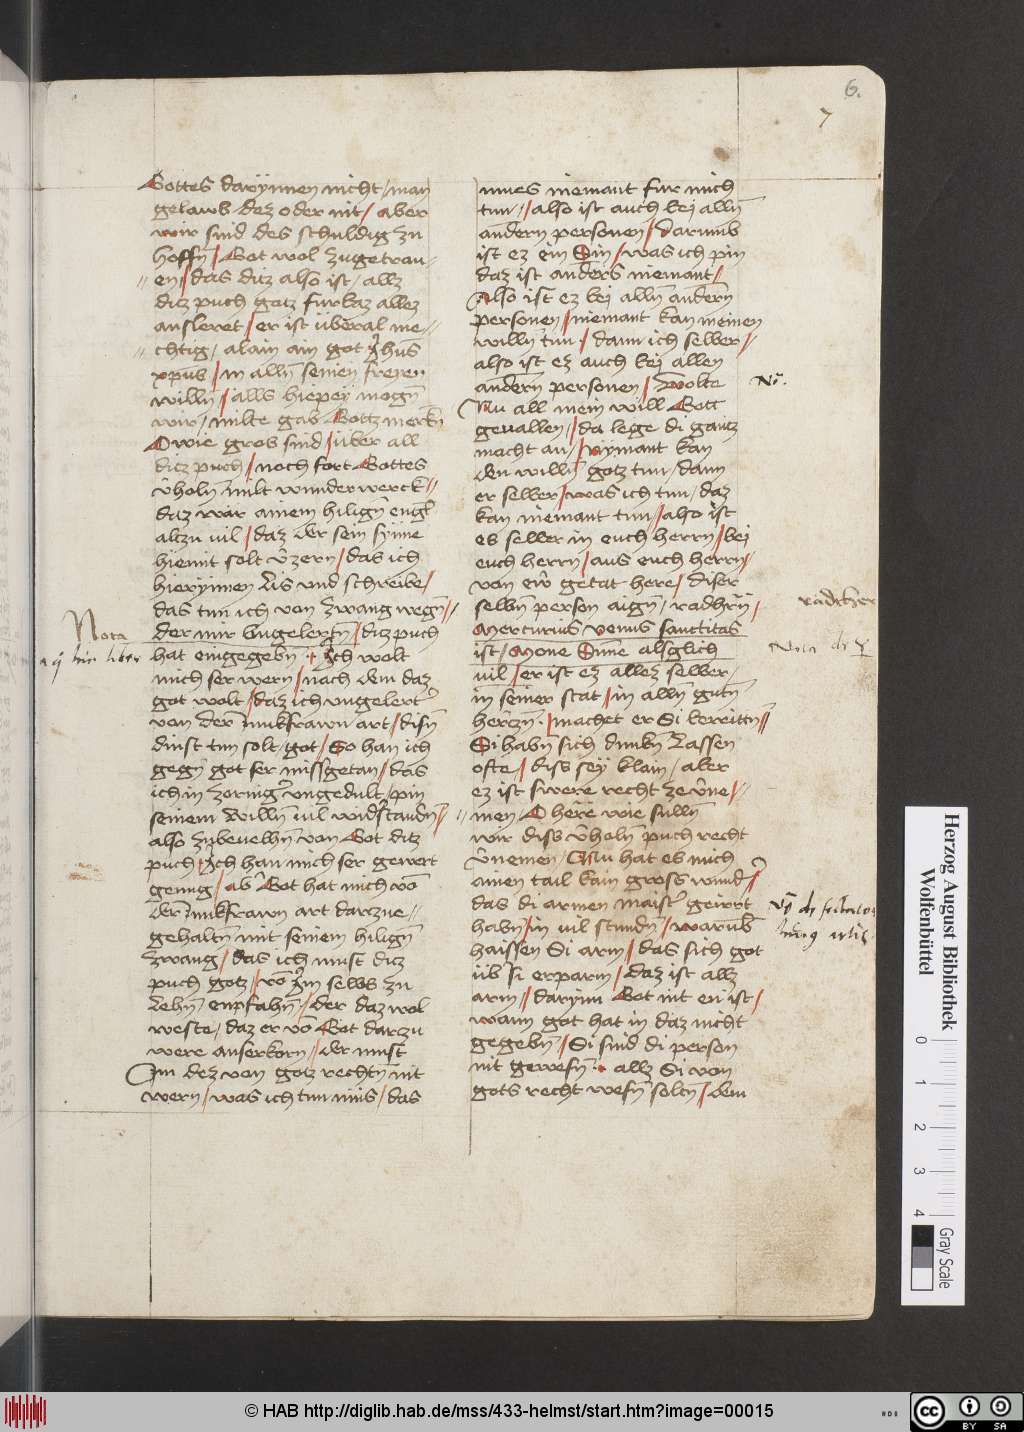 6.
7
Gottes darÿnnen nicht / man
gelaub dez oder nit / aber
wir sind des schuldig zu
hoffn̄ / Got wol zugetrau-
en / das ditz also ist / allz
ditz puch getz furbaz allez
ausleret / er ist uberal me-
chtig / alain ain got Jh̄us
xp̄us / in alln̄ seinen freyen
willn̄ / alls hiepeÿ mogn̄
wir milte gab Gottz merkn̄
O wie gros sind / über all
ditz puch / noch fort Gottes
wunderwerck
daz war ainem hilign̄
altzu vil / daz der sein sÿnne
hiemit solt / das ich
hierÿnnen lis vnd schreibe /
das tun ich von zwang wegn̄ //
der mir vngelertn̄ / ditz puch
hat eingegebn̄ + Jch wolt
mich ser wern / nach dem daz
got wolt / daz ich vngelerter
von der junkfrawn art / disn̄
dinst tun solt / got / So han ich
gegn̄ got ser missgetan / das
ich in zorniger vngedult / pin
seinem Willn̄ vil widerstandn̄ //
also zubeuelhn̄ von Got ditz
puch + Jch han mich ser gewert
genug / ab Got hat mich vō
der junkfrawn art darzue-
gehaltn̄ mit seinem hilign̄
zwang / das ich must ditz
puch gotz / vō jm selbs zu
lehn̄ enpfahn̄ / der daz wol
weste / daz er vō Got darzu
were auserkorn // der must
Om dez von gotz rechtn̄ nit
wern / was ich tun mus / das
Nota
hui liber
mues niemant fur mich
tun // also ist auch bei alln̄
andern personen / darumb
ist ez ein Sin / was ich pin
daz ist anders niemant /
Also ist ez bei alln̄ andern
personen / niemant kan meinen
willn̄ tun / dann ich selber /
also ist ez auch bei allen
andern personen / Wolte
Nu all mein will Gott
geuallen / da lege di gantz
macht an / Nÿmant kan
den willn̄ gotz tun / dann
er selber / was ich tun / daz
kan niemant tun / also ist
es selber in euch herrn / bei
euch herrn / aus euch herrn /
von ew̄ getat here / diser
selbn̄ person aign̄ /
Mercurius venus sanctitas
ist / Mone Sunne alsglich
vil / er ist ez allez selber /
in seiner stat / in alln̄ gutn̄
hertzn̄ . machet er Si berittn̄ //
Si habn̄ sich dunkn̄ Lassen
ofte / diss seÿ klain / aber
ez ist swere recht ze v̄ne-
men / O herre wie sulln̄
wir diss puch recht
v̄nemen / Nu hat es mich
ainen tail kain gross wunder /
das di armen maister geirrt
habn̄ / in vil stundn̄ / warūb
haissen Si arm / das sich got
üb̄ si erparm / daz ist allz
arm // darÿnn Got nit en ist /
wann got hat in daz nicht
gegebn̄ / Si sind di person
nit gewesn̄ . allz Si von
gots recht wesn̄ soltn̄ / dem
Nō.
Nota
Herzog August Bibliothek
Wolfenbüttel
0 1 2 3 4
Gray Scale
© HAB http://diglib.hab.de/mss/433-helmst/start.htm?image=00015
HAB
cc BY SA